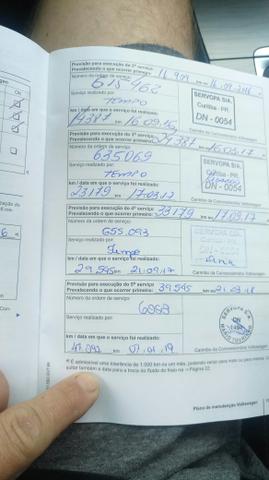 Previsão para execução do 2º serviço
Prevalecendo o que ocorrer primeiro: km ou 16.09.2016
Número da ordem de serviço:
615462
SERVOPA S/A.
Curitiba - PR.
DN - 0054
Serviço realizado por:
TEMPO
km / data em que o serviço foi realizado:
14387 km 16.09.16
Carimbo da Concessionária Volkswagen
Previsão para execução do 3º serviço
Prevalecendo o que ocorrer primeiro: 24387 km ou 16.03.17
Número da ordem de serviço:
635069
SERVOPA S/A.
Curitiba - PR.
DN - 0054
Serviço realizado por:
TEMPO
km / data em que o serviço foi realizado:
23179 km 17.03.17
Carimbo da Concessionária Volkswagen
Previsão para execução do 4º serviço
Prevalecendo o que ocorrer primeiro: 33179 km ou 17.09.17
Número da ordem de serviço:
655.093
Serviço realizado por:
Tempo
km / data em que o serviço foi realizado:
29.595 km 21.09.17
Carimbo da Concessionária Volkswagen
Previsão para execução do 5º serviço
Prevalecendo o que ocorrer primeiro: 39.595 km ou 21.03.18
Número da ordem de serviço:
Serviço realizado por:
km / data em que o serviço foi realizado:
km 07.01.19
Carimbo da Concessionária Volkswagen
É admissível uma tolerância de 1.000 km ou um mês, podendo
Plano de manutenção Volkswagen